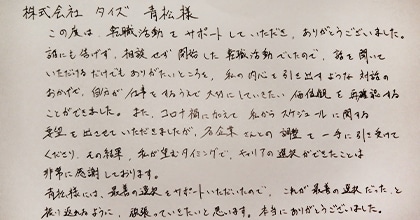 株式会社 タイズ 青松様
この度は、転職活動をサポートしていただき、ありがとうございました。
誰にも告げず、相談せず開始した転職活動でしたので、話を聞いて
いただけるだけでもありがたいところを、私の内心を引き出すような対話の
おかげで、自分が仕事をするうえで大切にしていきたい価値観を再確認する
ことができました。また、コロナ禍に加えて私からスケジュールに関する
要望を出させていただきましたが、各企業さんとの調整を一手に引き受けて
くださり、その結果、私が望むタイミングで、キャリアの選択ができたことは
非常に感謝しております。
青松様には、最善の選択をサポートいただいたので、これが最善の選択だった、と
振り返れるように、頑張っていきたいと思います。本当にありがとうございました。